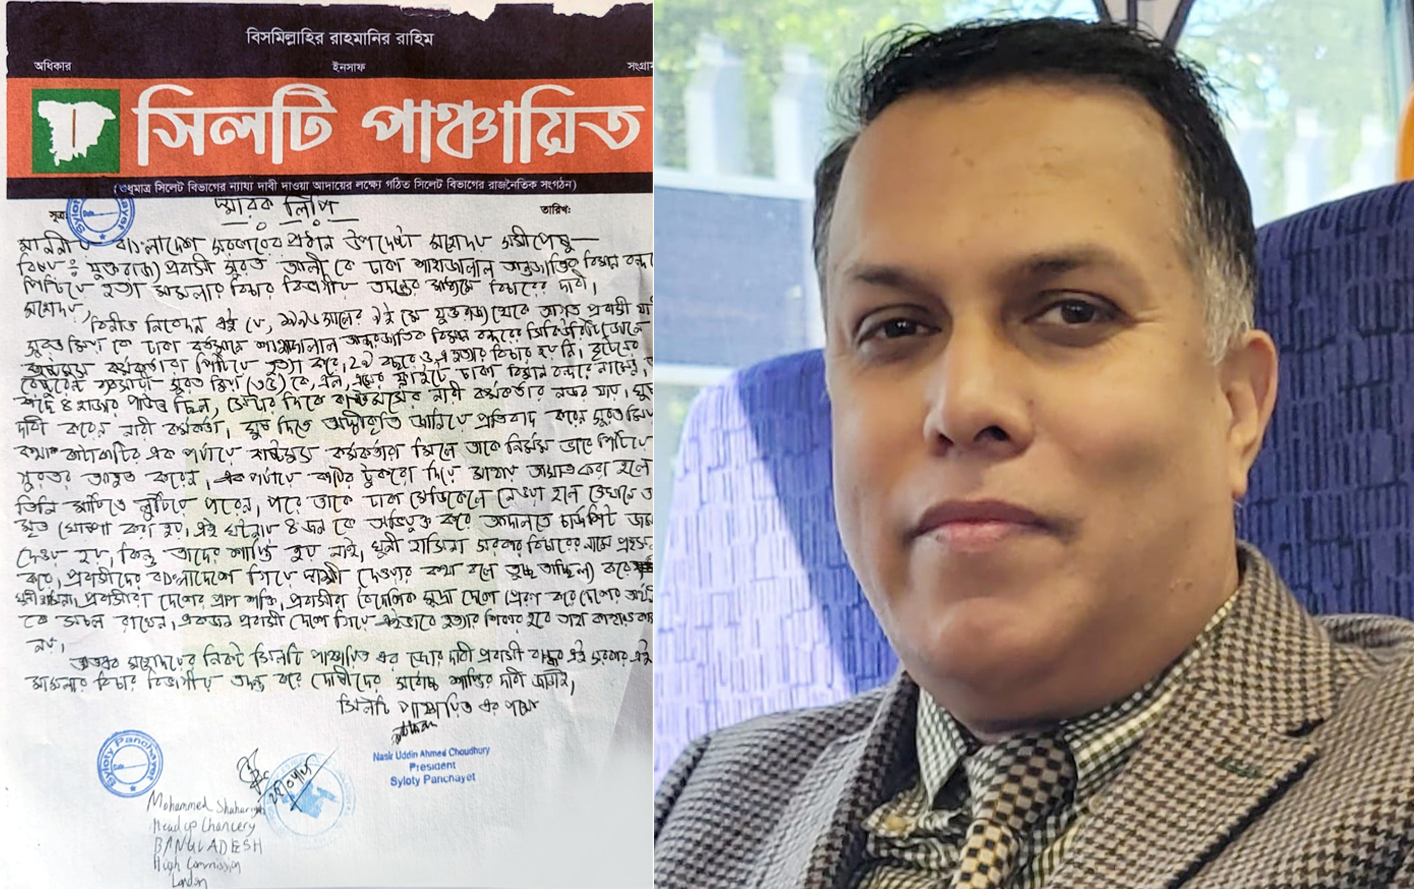 বিসমিল্লাহির রাহমানির রাহিম
অধিকার ইনসাফ
সিলটি পাঞ্চায়িত
(শুধুমাত্র সিলেট বিভাগের ন্যায্য দাবী দাওয়া আদায়ের লক্ষ্যে গঠিত সিলেট বিভাগের রাজনৈতিক সংগঠন)
সূত্র: তারিখ:
স্মারক লিপি
মাননীয় বাংলাদেশ সরকারের প্রধান উপদেষ্টা মহোদয় সমীপেষু—
বিষয়ঃ যুক্তরাজ্য প্রবাসী সুরত আলী কে ঢাকা শাহজালাল আন্তর্জাতিক বিমান
পিটিয়ে হত্যা মামলার বিচার বিভাগীয় তদন্তের মাধ্যমে বিচারের দাবী।
মহোদয়,
বিনীত নিবেদন এই যে, ১৯৯৬ সালের ৭ই মে যুক্তরাজ্য থেকে আগত প্রবাসী
সুরত মিয়া কে ঢাকা বর্তমানে শাহজালাল আন্তর্জাতিক বিমান বন্দরের
কাস্টমস কর্মকর্তারা পিটিয়ে হত্যা করে, ২৯ বছরে ও এ হত্যার বিচার হয়নি। বৃটেনের
সুরত মিয়া (৩৫) কে, ফ্লাইটে ঢাকা বিমান বন্দরে নামেন,
৪ হাজার পাউন্ড ছিল, সেটার দিকে কাস্টমসের নারী কর্মকর্তার নজর যায়।
দাবী করেন নারী কর্মকর্তা, ঘুষ দিতে অস্বীকৃতি জানিয়ে প্রতিবাদ করেন সুরত মিয়া
কথা কাটাকাটির এক পর্যায়ে কাস্টমস কর্মকর্তারা মিলে তাকে নির্মম ভাবে পিটিয়ে
গুরুতর আহত করেন, এক পর্যায়ে কাঠের টুকরো দিয়ে মাথায় আঘাত করা হলে
তিনি মাটিতে লুটিয়ে পরেন, পরে তাকে ঢাকা মেডিকেলে নেওয়া হলে সেখানে
মৃত ঘোষণা করা হয়, এই ঘটনায় ৪ জন কে অভিযুক্ত করে আদালতে চার্জশিট জমা
দেওয়া হয়, কিন্তু তাদের শাস্তি হয় নাই, খুনী হাসিনা সরকার বিচারের নামে
করে, প্রবাসীদের বাংলাদেশে গিয়ে সাক্ষী দেওয়ার কথা বলে তুচ্ছ তাচ্ছিল্য করে
প্রবাসীরা দেশের প্রাণ শক্তি, প্রবাসীরা বৈদেশিক মুদ্রা দেশে প্রেরণ করে দেশের
কে সচল রাখেন, একজন প্রবাসী দেশে গিয়ে এইভাবে হত্যার শিকার হবে তাহা
নয়।
অতএব মহোদয়ের নিকট সিলটি পাঞ্চায়িত এর জোর দাবী প্রবাসী বান্ধব এই সরকার এই
মামলার বিচার বিভাগীয় তদন্ত করে দোষীদের সর্বোচ্চ শাস্তির দাবী জানাই,
সিলটি পাঞ্চায়িত এর পক্ষে
Nasir Uddin Ahmed Choudhury
President
Syloty Panchayet
Syloty Panchayet
Mohammed
Head of Chancery
BANGLADESH
High Commission
London